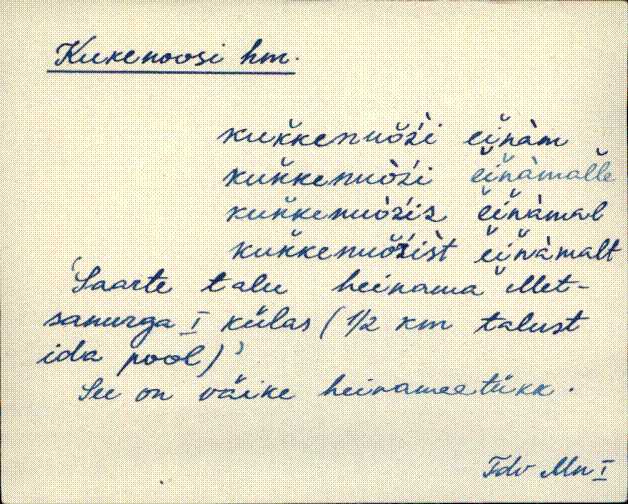 Kukenoosi hm.
kuk̆kenuŏźi eĭnàm
kuk̆kenuòźi eĭnàmal̆le
kuk̆kenuòźiz eĭnàmal
kuk̆kenuŏźist eĭnàmalt
'Saarte talu heinama Met-
sanurga I külas (1/2 km talust
ida pool)'
See on väike heinameetükk.
Tdv Mn I